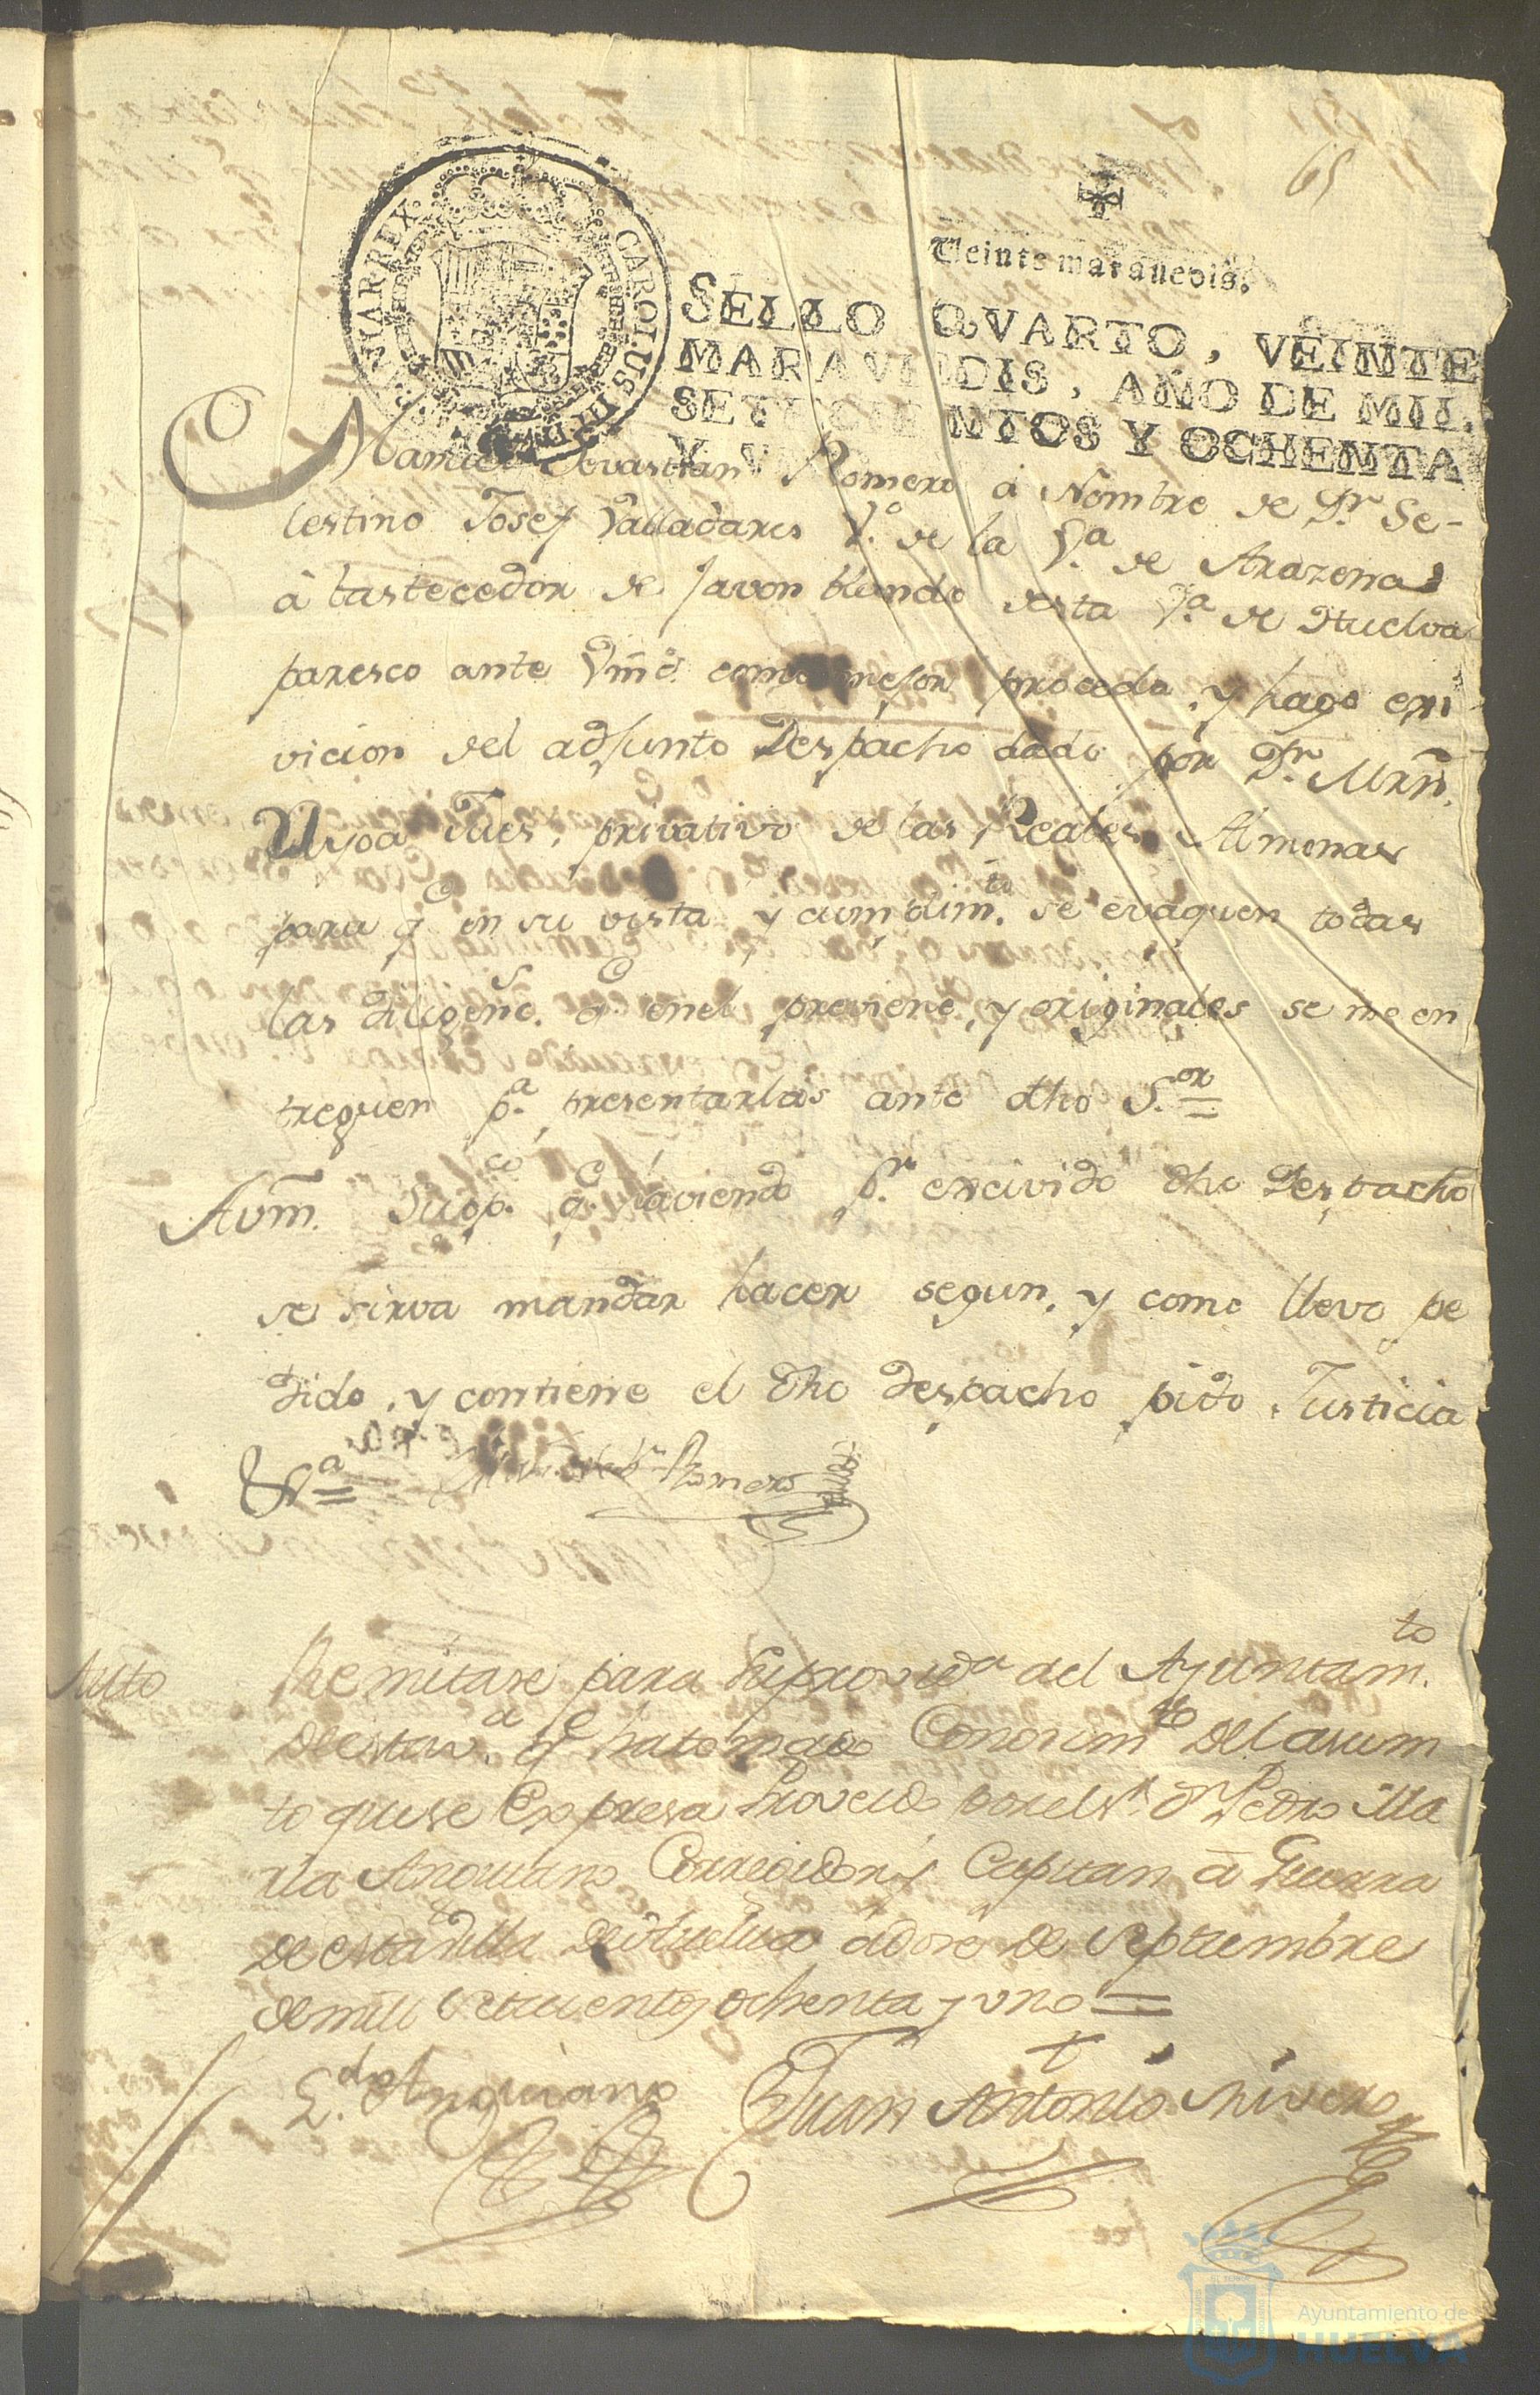 65
Veinte maravedis.
SELLO QVARTO, VEINTE
MARAVEDIS, AÑO DE MIL
SETECIENTOS Y OCHENTA
Y VNO
CAROLUS III D G HISPANIAR REX
Manuel Sevastian Romero á Nombre de Dn Se-
lestino Josef Valladares V.º de la V.a de Arazena
àbastecedor de Javon blando desta V.a de Huelva
paresco ante Vmd. como mejor proceda, y hago exsi
vicion del adjunto Despacho dado por Dn. Mrñ.
Ulloa Jues, privativo de las Reales Almonas
para qe en su vista y cumplim.to se evaquen todas
las diligens. qe enel previene, y originales se me en
treguen p.a presentarlas ante dho S.or =
Avm. Supp.co qe haviendo p.r excivido dho Despacho
se sirva mandar hacer segun, y como llevo pe
dido, y contiene el dho despacho pido Justicia
&.a = Man.l Seb.n Romero
Auto Remitase para su provid.a del Ayuntam.to
de esta v.a qe ha tomado Conocim.to del asum
to que se Expresa Proveido por el S.r Dn Pedro Ma
ria Anguiano Corregidor y Capitan à Guerra
de esta villa de Huelva à dose de Septiembre
de mill setecientos ochenta y uno =
L.do Anguiano Juan Antonio Rivero
Ayuntamiento de
HUELVA